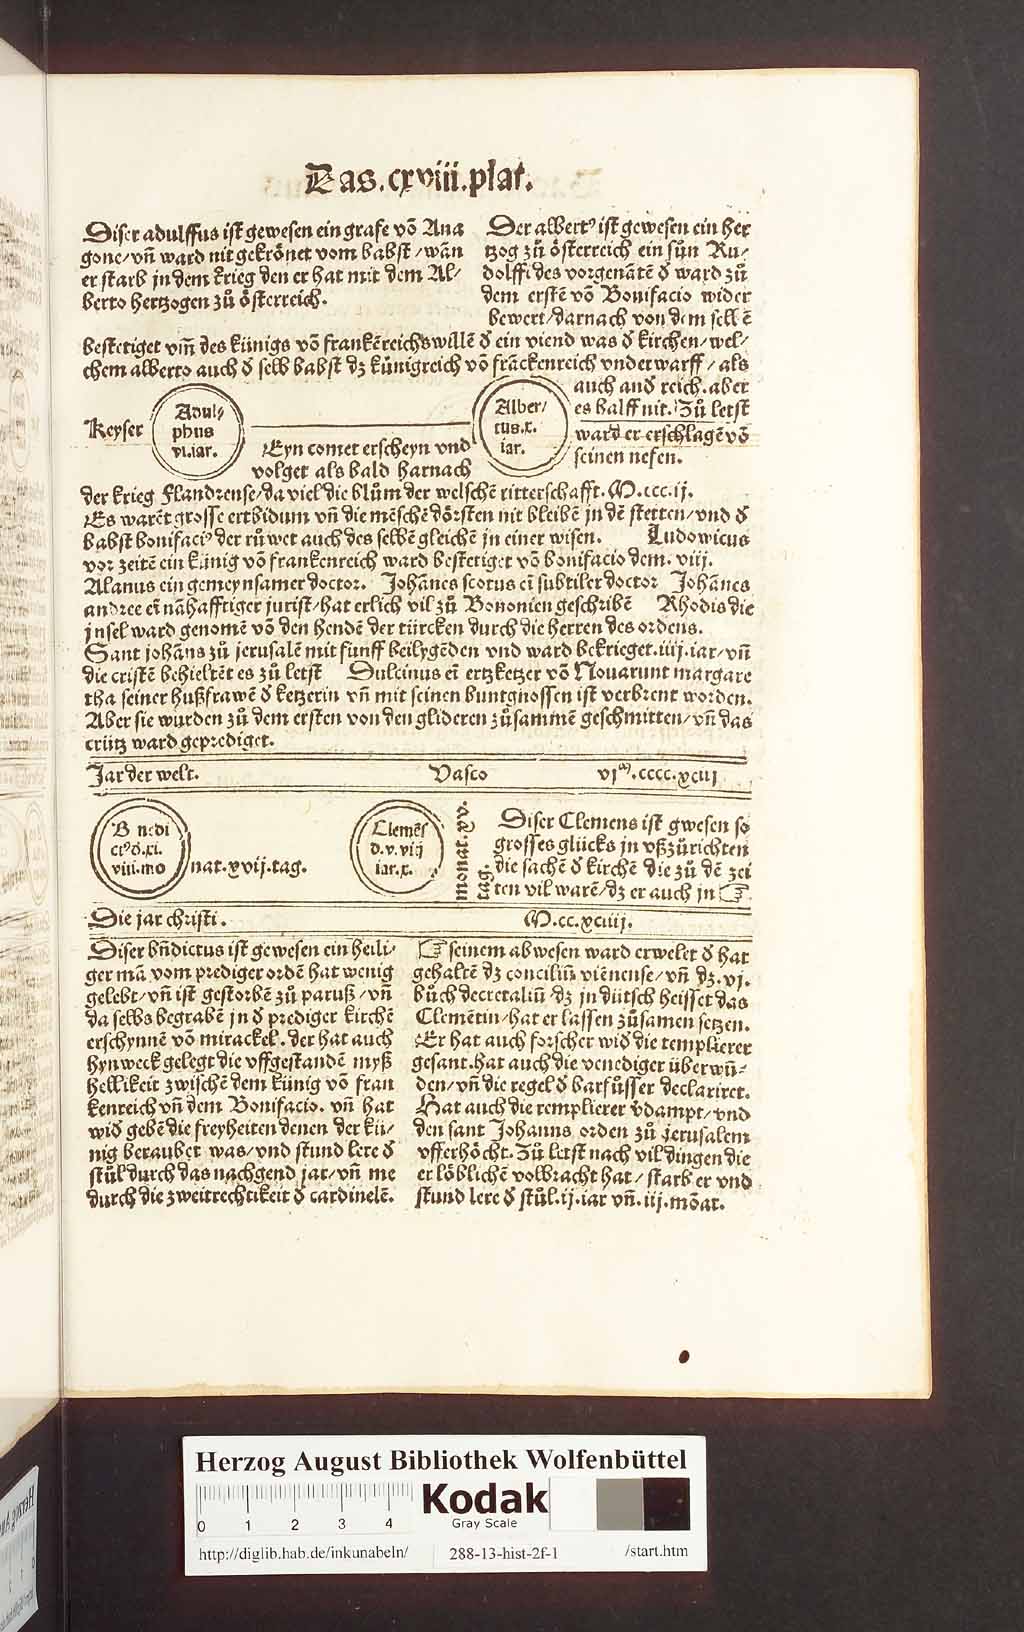 Das.cxviii.plat.
Diser adulffus ist gewesen ein grafe võ Ana
gone/vñ ward nit gekrönet vom babst/wañ
er starb jn dem krieg den er hat mit dem Al⸗
berto hertzogen zů österreich.
Der albertꝰ ist gewesen ein her
tzog zů österreich ein sůn Ru⸗
dolffi des vorgenãtẽ đ ward zů
dem erstẽ võ Bonifacio wider
bewert/darnach von dem selbẽ
bestetiget vm̃ des künigs võ frankẽreichs willẽ đ ein viend was đ kirchen/wel⸗
chem alberto auch đ selb babst dz künigreich võ frãckenreich vnderwarff/als
auch and̄ reich.aber
es halff nit.Zů letst
ward er erschlagẽ võ
seinen nefen.
Keyser
Adul⸗
phus
vi.iar.
Alber/
tus.x.
iar.
Eyn comet erscheyn vnd
volget als bald harnach
der krieg Flandrense/da viel die blům der welschẽ ritterschafft.M.ccc.ij.
Es warẽt grosse ertbidum vñ die mẽschẽ dörsten nit bleibẽ jn dẽ stetten/vnd đ
babst bonifaciꝰ der růwet auch des selbẽ gleichẽ jn einer wisen. Ludowicus
vor zeitẽ ein künig võ frankenreich ward bestetiget võ bonifacio dem.viij.
Alanus ein gemeynsamer doctor. Johãnes scotus eĩ subtiler doctor Johãnes
andree eĩ nãhafftiger jurist/hat erlich vil zů Bononien geschribẽ Rhodis die
jnsel ward genomẽ võ den hendẽ der türcken durch die herren des ordens.
Sant johãns zů jerusalẽ mit funff beilygẽden vnd ward bekrieget.iiij.iar/vñ
die cristẽ behieltẽt es zů letst Dulcinus eĩ ertzketzer võ Nouarunt margare
tha seiner hußfrawẽ đ ketzerin vñ mit seinen buntgnossen ist verbrent worden.
Aber sie wurden zů dem ersten von den glideren zůsammẽ geschmitten/vñ das
crütz ward geprediget.
Jar der welt. Vasco vjᵐ.cccc.xciij
B nedi
ctꝰ.d.xi.
viii.mo
nat.xvij.tag.
Clemẽs
d.v.viij
iar.x.
monat.xv.
tag.
Diser Clemens ist gwesen so
grosses glücks jn vßzůrichten
die sachẽ đ kirchẽ die zů dẽ zei
ten vil warẽ/dz er auch jn ☞
Die jar christi. M.cc.xciiij.
Diser bñdictus ist gewesen ein heili⸗
ger mã vom prediger ordẽ hat wenig
gelebt/vñ ist gestorbẽ zů paruß/vñ
da selbs begrabẽ jn đ prediger kirchẽ
erschynnẽ võ mirackel.der hat auch
hynweck gelegt die vffgestandẽ myß
hellikeit zwischẽ dem künig võ fran
kenreich vñ dem Bonifacio.vñ hat
wid̄ gebẽ die freyheiten denen der kü⸗
nig beraubet was/vnd stund lere đ
stůl durch das nachgend jar/vñ me
durch die zweitrechtikeit đ cardinelẽ.
☞ seinem abwesen ward erwelet đ hat
gehaltẽ dz conciliũ viẽnense/vñ dz.vj.
bůch decretaliũ dz jn dütsch heisset das
Clemẽtin/hat er lassen zůsamen setzen.
Er hat auch forscher wid̄ die templierer
gesant.hat auch die venediger überwũ⸗
den/vñ die regel đ barfüsser declariret.
Hat auch die templierer v̄dampt/vnd
den sant Johanns orden zů jerusalem
vfferhöcht.Zů letst nach vil dingen die
er löblichẽ volbracht hat/starb er vnd
stund lere đ stůl.ij.iar vñ.iij.mõat.
Herzog August Bibliothek Wolfenbüttel
0 1 2 3 4
Kodak
Gray Scale
http://diglib.hab.de/inkunabeln/ 288-13-hist-2f-1 /start.htm